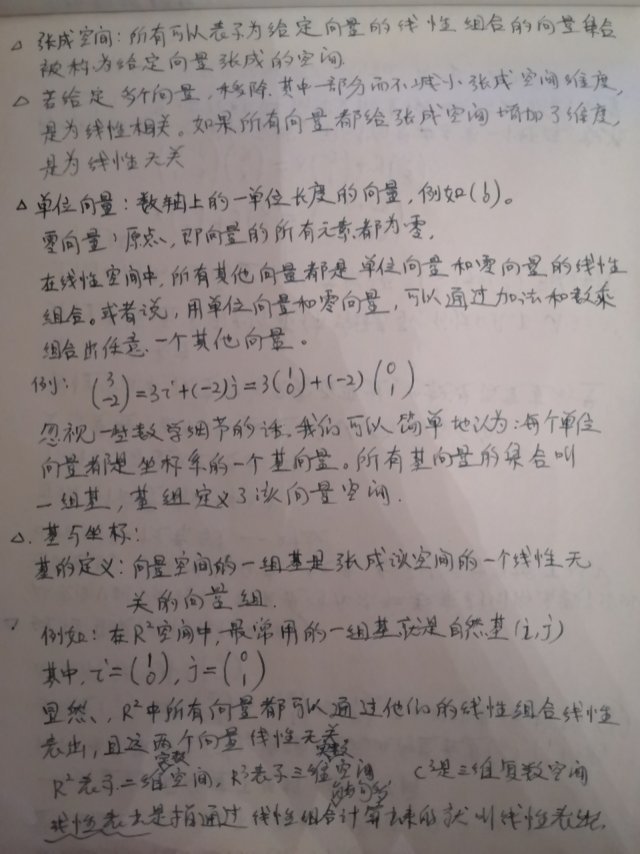 △ 张成空间：所有可以表示为给定向量的线性组合的向量集合
被称为给定向量张成的空间.
△ 若给定多个向量，移除其中一部分而不减小张成空间维度，
是为线性相关。如果所有向量都给张成空间增加了维度，
是为线性无关
△ 单位向量：数轴上的一单位长度的向量，例如(1 0)。
零向量：原点、即向量的所有元素都为零，
在线性空间中，所有其他向量都是单位向量和零向量的线性
组合。或者说，用单位向量和零向量，可以通过加法和数乘
组合出任意一个其他向量。
例：(3 -2)=3i+(-2)j=3(1 0)+(-2)(0 1)
忽视一些数学细节的话，我们可以简单地认为：每个单位
向量都是坐标系的一个基向量。所有基向量的集合叫
一组基，基组定义了该向量空间.
△. 基与坐标：
基的定义：向量空间的一组基是张成该空间的一个线性无
关的向量组.
例如：在R²空间中，最常用的一组基就是自然基(i,j)
其中，i=(1 0), j=(0 1)
显然、R²中所有向量都可以通过他们的线性组合线性
表出，且这两个向量线性无关
实数 实数
R²表示二维空间，R³表示三维空间 C³是三维复数空间
线性表出是指通过线性组合计算出来的 就叫线性表出.